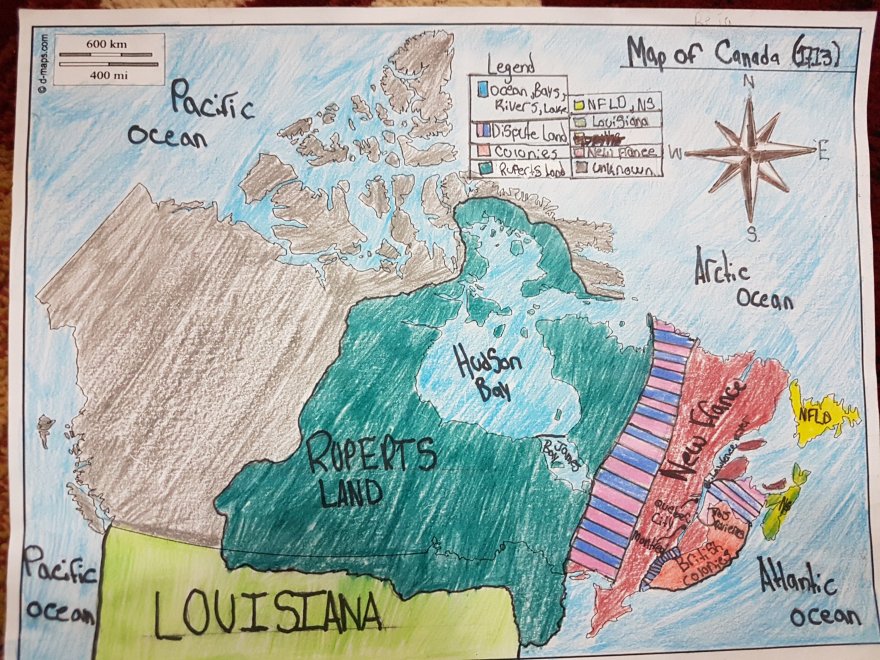 © d-maps.com
600 km
400 mi
Map of Canada (1713)
Legend
Ocean, Bays,
Rivers, Lake
Dispute Land
Colonies
Ruperts Land
NFLD, NS
Louisiana
New France
Unknown
N
W
E
S
Pacific
Ocean
Arctic
Ocean
Hudson
Bay
James
Bay
RUPERTS
LAND
New France
NFLD
NS
Quebec
City
British
Colonies
Pacific
Ocean
LOUISIANA
Atlantic
Ocean